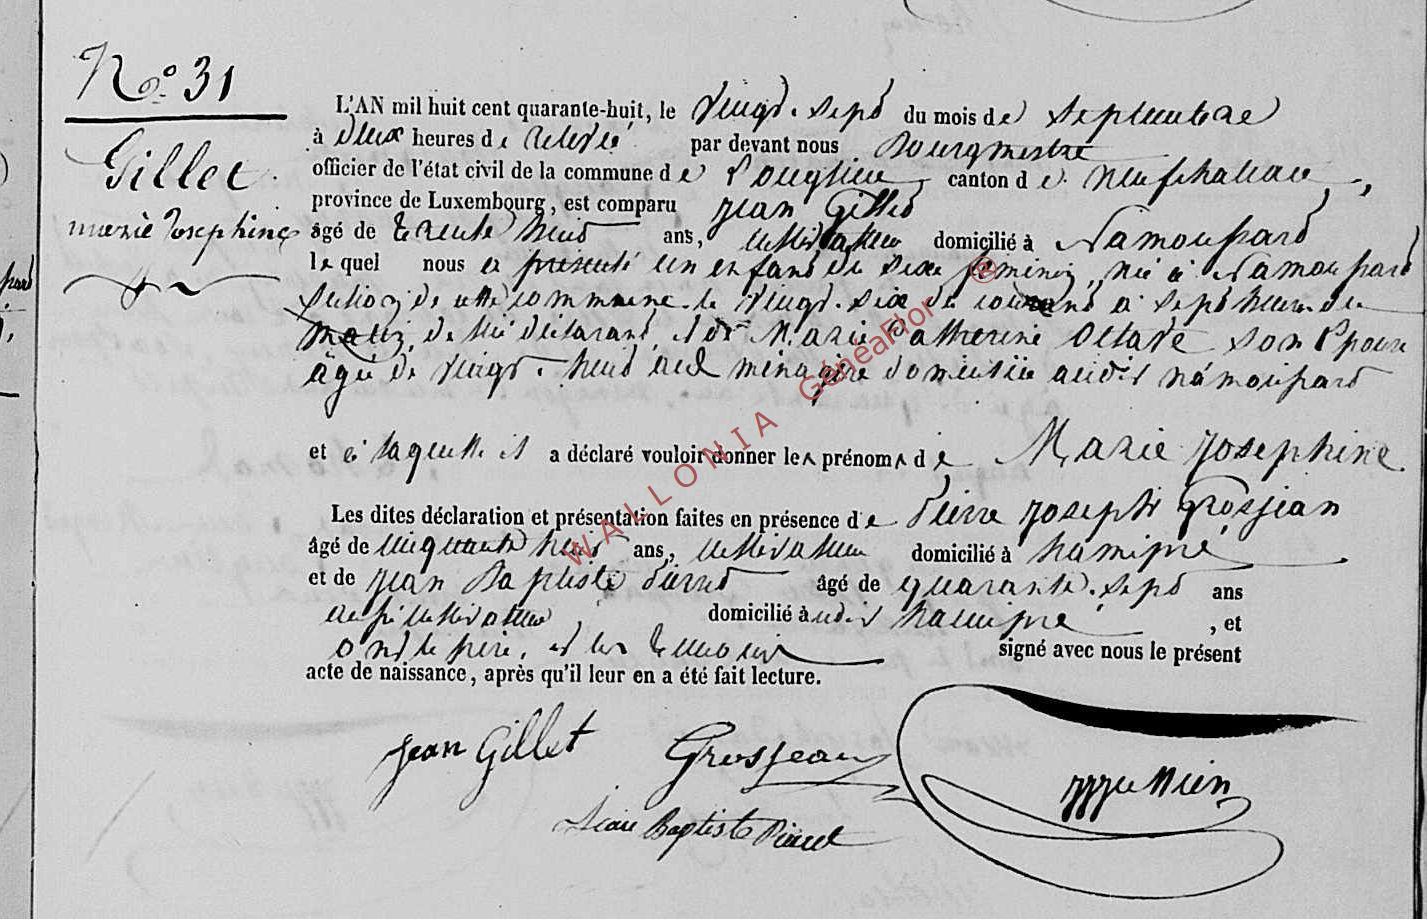 N.° 31
Gillet
marie Josephine
L'AN mil huit cent quarante-huit, le vingt-sept du mois de septembre
à deux heures de relevé par devant nous Bourgmestre
officier de l'état civil de la commune de Longlier canton de Neufchateau,
province de Luxembourg, est comparu jean Gillet
âgé de trente huit ans, cultivateur domicilié à Namoussart
lequel nous a présenté un enfant du sexe féminin, née à Namoussart
section de cette commune le vingt-six du courant à sept heures du
matin, de lui déclarant, et de Marie Catherine Octave son Epouse
âgée de vingt-huit ans ménagère domiciliée audit Namoussart
et à laquelle il a déclaré vouloir donner les prénoms de Marie Josephine
Les dites déclaration et présentation faites en présence de Pierre Joseph Grosjean
âgé de cinquante huit ans, cultivateur domicilié à hamipré
et de jean Baptiste Pierret âgé de quarante-sept ans
aussi cultivateur domicilié audit hamipré, et
ont le père, et les témoins signé avec nous le présent
acte de naissance, après qu'il leur en a été fait lecture.
jean Gillet Grosjean
Jean Baptiste Pierret
WALLONIA GénéaFlor ®